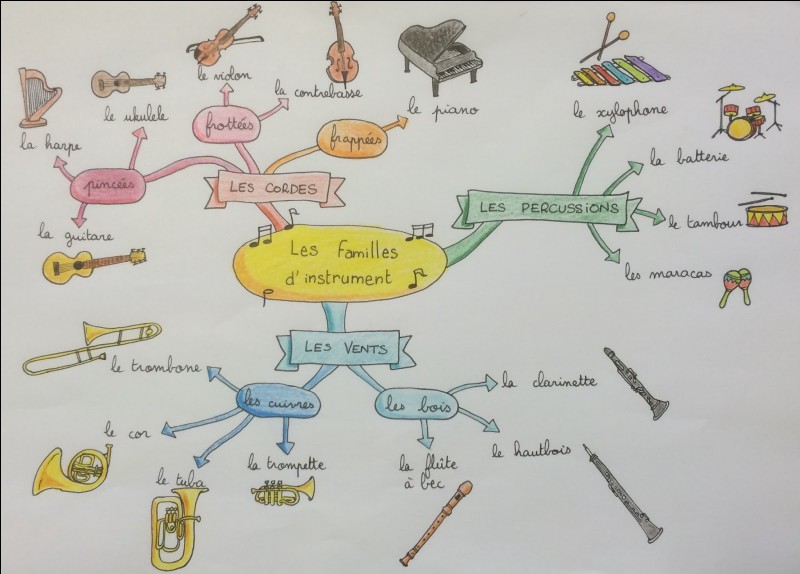 Les Familles
d'instrument
LES CORDES
pincées
la harpe
le ukulele
la guitare
frottées
le violon
la contrebasse
frappées
le piano
LES PERCUSSIONS
le xylophone
la batterie
le tambour
les maracas
LES VENTS
les cuivres
le trombone
le cor
le tuba
la trompette
les bois
la flûte
à bec
la clarinette
le hautbois